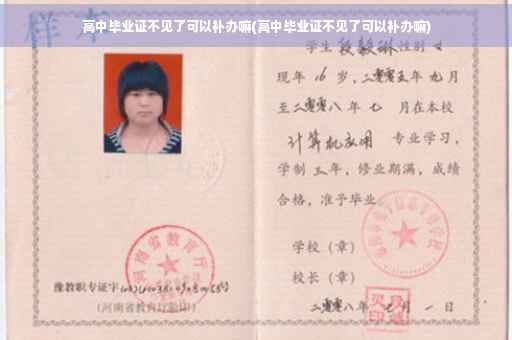 高中毕业证不见了可以补办嘛(高中毕业证不见了可以补办嘛)
样本
学生 段毅琳 性别 女
现年 16 岁，二零零五年 九月
至二零零八年 七 月在本校
计算机应用 专业学习，
学制 三 年，修业期满，成绩
合格，准予毕业
学校（章）
校长（章）
二零零八年 七 月 一 日
河南省教育厅
豫教职专证字
(河南省教育厅验印)